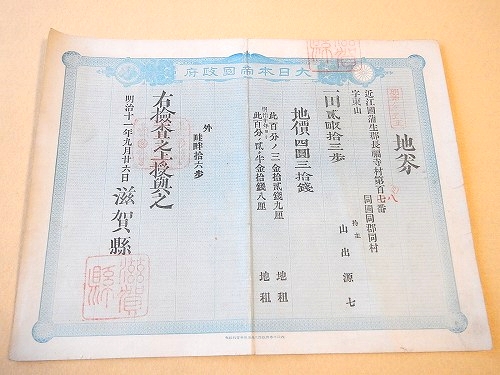 大日本帝国政府
地券
近江國蒲生郡長福寺村第百七番
字東山
同國同郡同村
持主 山出源七
一田貳畝拾三歩
地價四圓三拾錢
此百分ノ三金拾貳錢九厘 地租
此百分ノ貳半金拾錢八厘 地租
外
畦畔拾六歩
右検査之上授與之
明治十一年九月廿六日 滋賀縣
滋賀縣